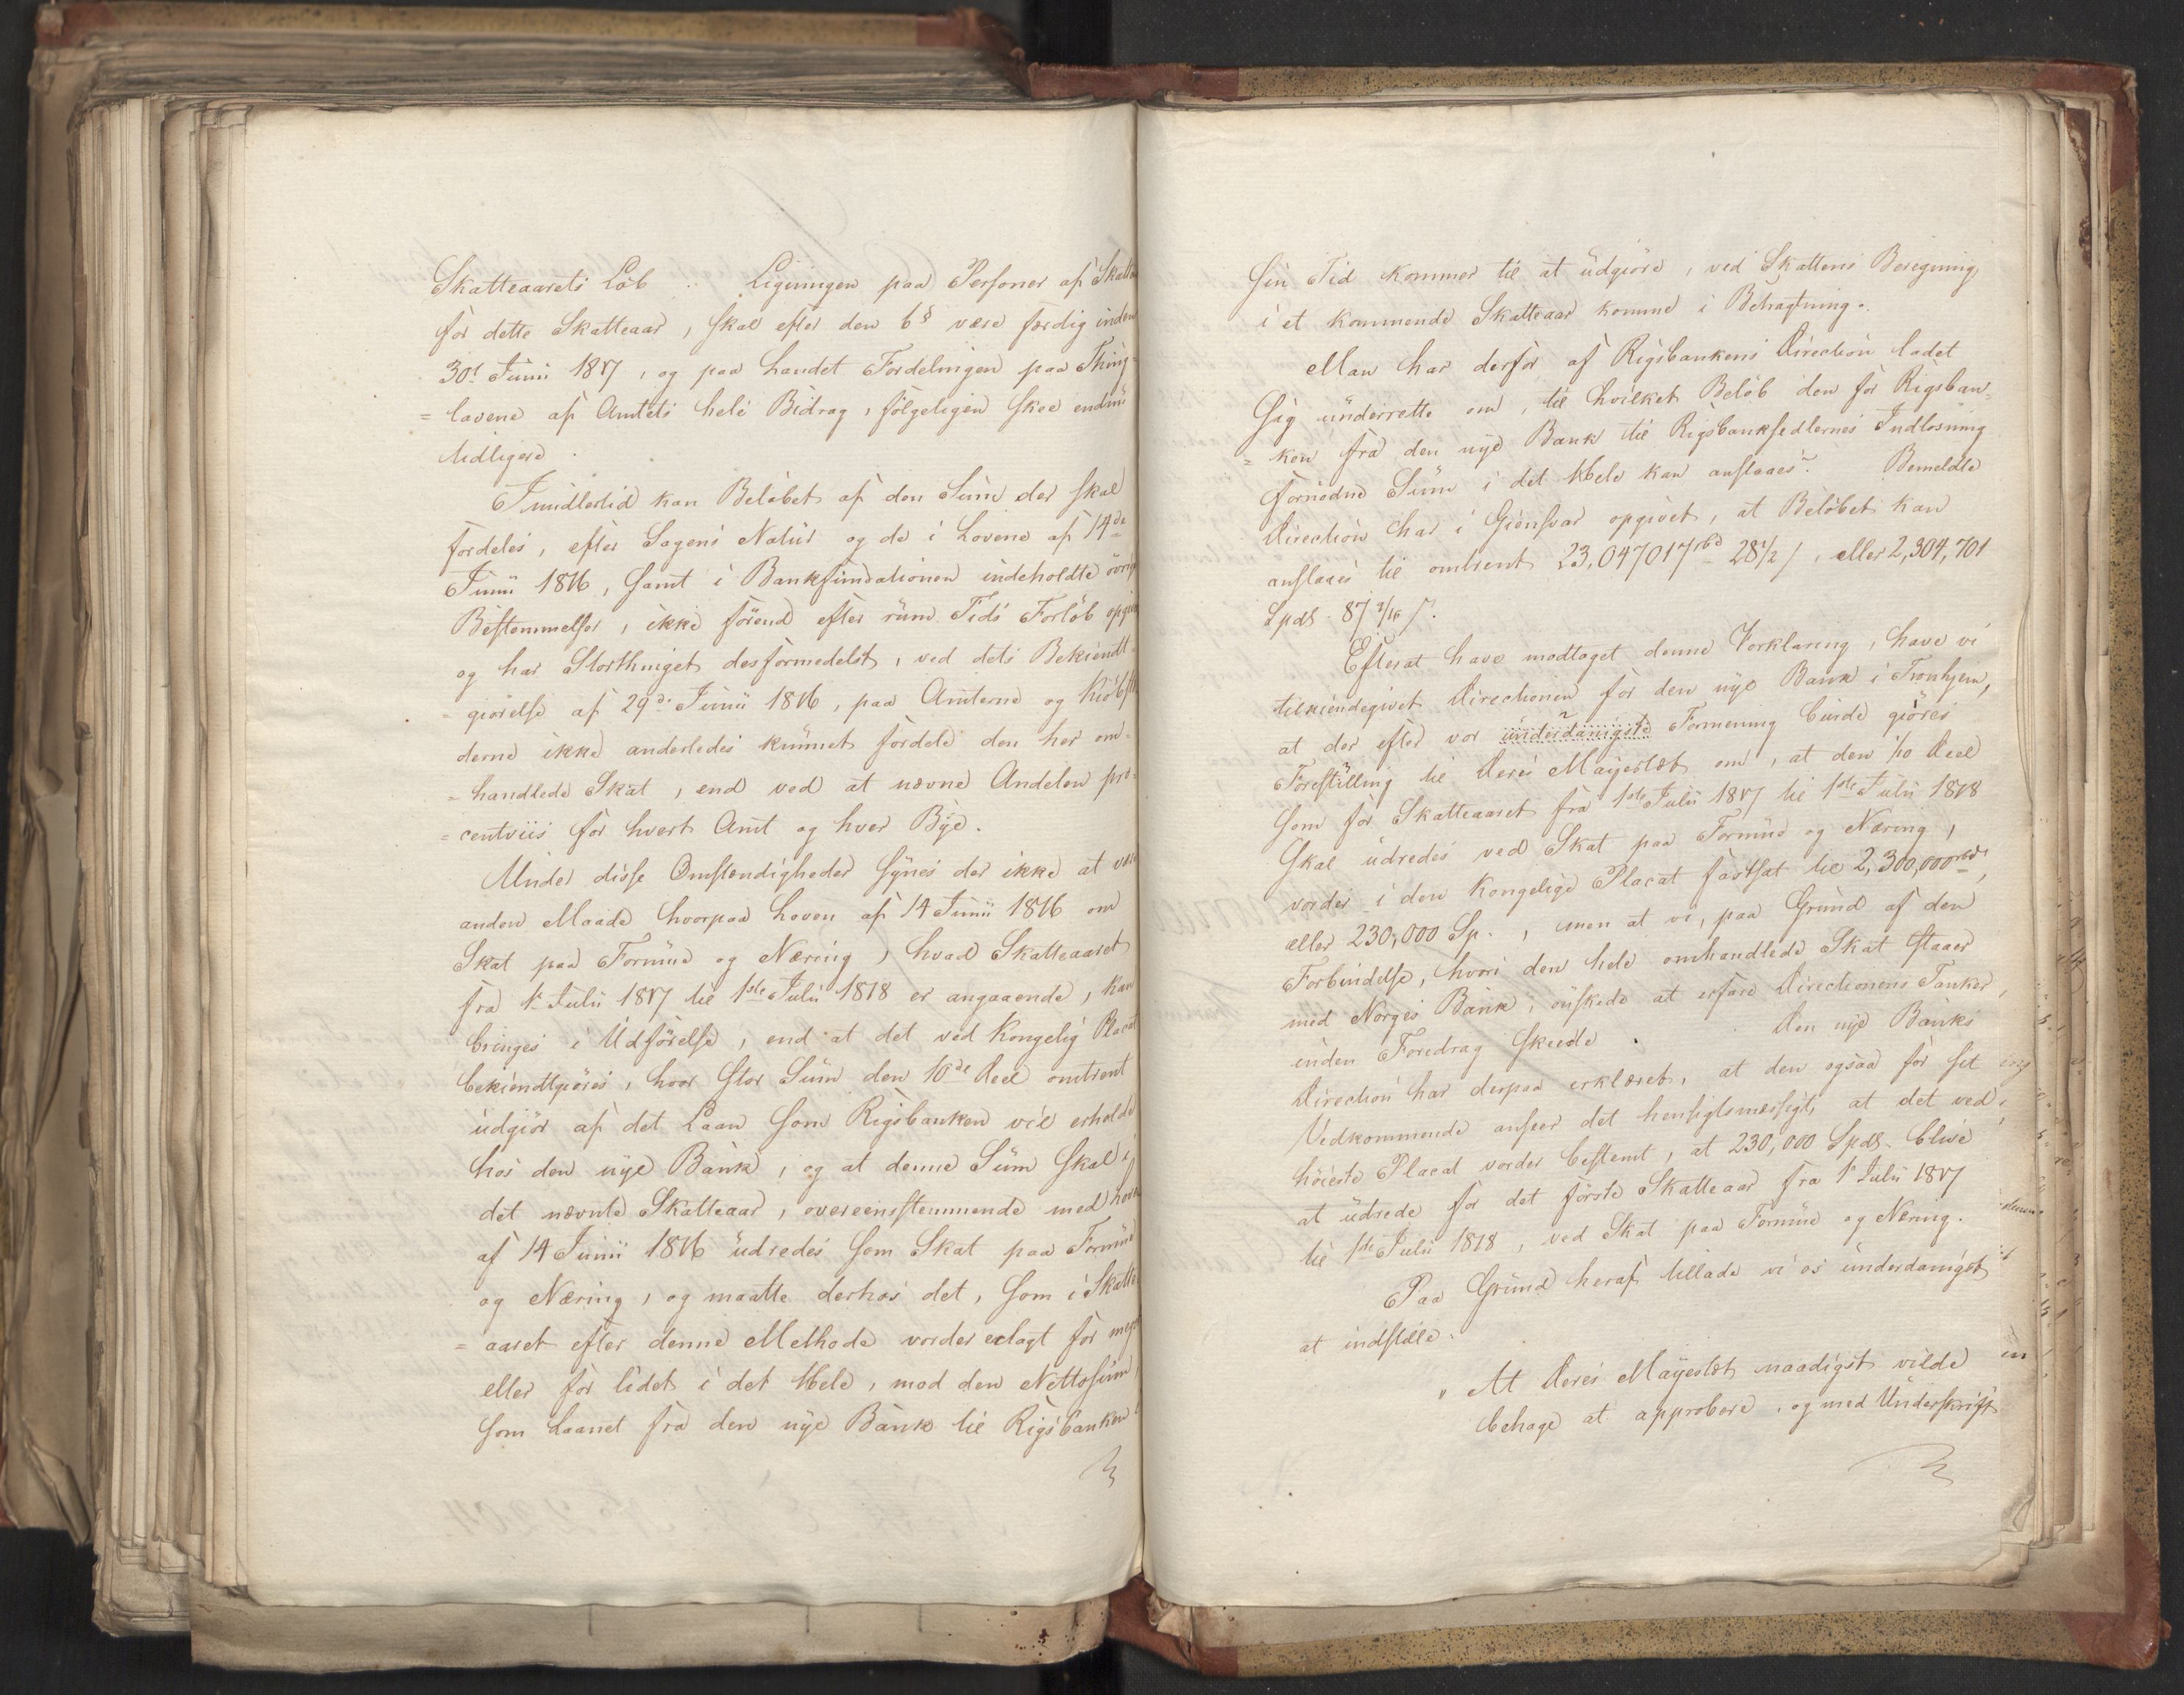 Skatteaarets Løb. Ligningen paa Personer af Skatten
for dette Skatteaar, skal efter den 6§ være færdig inden
30t Junii 1817, og paa Landet Fordelingen paa Thing-
=lavene af Amtets hele Bidrag, følgeligen skee endnu
tidligere.
Imidlertid kan Beløbet af den Sum der skal
fordeles, efter Sagens Natur og de i Lovene af 14de
Junii 1816, samt i Bankfundationen indeholdte øvrige
Bestemmelser, ikke førend efter rum Tids Forløb opgives
og har Storthinget desformedelst, ved dets Bekiendt-
=giørelse af 29de Junii 1816, paa Amterne og Kiøbstæ
derne ikke anderledes kunnet fordele den her om-
=handlede Skat, end ved at nævne Andelen pro-
=centviis for hvert Amt og hver Bÿe.
Under disse Omstændigheder synes der ikke at være
anden Maade hvorpaa Loven af 14 Junii 1816 om
Skat paa Formue og Næring, hvad Skatteaaret
fra 1 Julii 1817 til 1ste Julii 1818 er angaaende, kan
bringes i Udførelse, end at det ved Kongelig Placat
bekiendtgiøres, hvor stor Sum den 10de Deel omtrent
udgiør af det Laan som Rigsbanken vil erholde
hos den nye Bank, og at denne Sum skal i
det nævnte Skatteaar, overeensstemmende med Loven
af 14 Junii 1816 udredes som Skat paa Formue
og Næring, og maatte derhos det, som i Skatte
=aaret efter denne Methode vorder erlagt for meget
eller for lidet i det Hele, mod den Nettosum,
som Laanet fra den nye Bank til Rigsbanken
sin Tid kommer til at udgiøre, ved Skattens Beregning
i et kommende Skatteaar komme i Betragtning.
Man har derfor af Rigsbankens Direction ladet
sig underrette om, til hvilket Beløb den for Rigsban-
=ken fra den nye Bank til Rigsbanksedlernes Indløsning
fornødne Sum i det Hele kan anslaaes. Bemeldte
Direction har i Giensvar opgivet, at Beløbet kan
anslaaes til omtrent 23,047017 rbd 28½ /, eller 2,304,701
Spds. 87 /.
Efterat have modtaget denne Forklaring, have vi
tilkiendegivet Directionen for den nye Bank i Tronhjem,
at der efter vor underdanigste Formening burde giøres
Forestilling til Deres Mayestæt om, at den 1/10 Deel
som for Skatteaaret fra 1ste Julii 1817 til 1ste Julii 1818
skal udredes ved Skat paa Formue og Næring,
vorder i den Kongelige Placat fastsat til 2,300,000 rbd,
eller 230,000 Sp., men at vi, paa Grund af den
Forbindelse, hvori den hele omhandlede Skat staaer
med Norges Bank, ønskede at erfare Directionens Tanker,
inden Foredrag skeede. Den nye Banks
Direction har derpaa erklæret, at den ogsaa for sit
Vedkommende anseer det hensigtsmæssigt, at det ved
høieste Placat vorder bestemt, at 230,000 Spds. blive
at udrede for det første Skatteaar fra 1 Julii 1817
til 1ste Julii 1818, ved Skat paa Formue og Næring.
Paa Grund heraf tillade vi os underdanigst
at indstille:
„At Deres Mayestæt naadigst vilde
behage at approbere, og med Underskrift